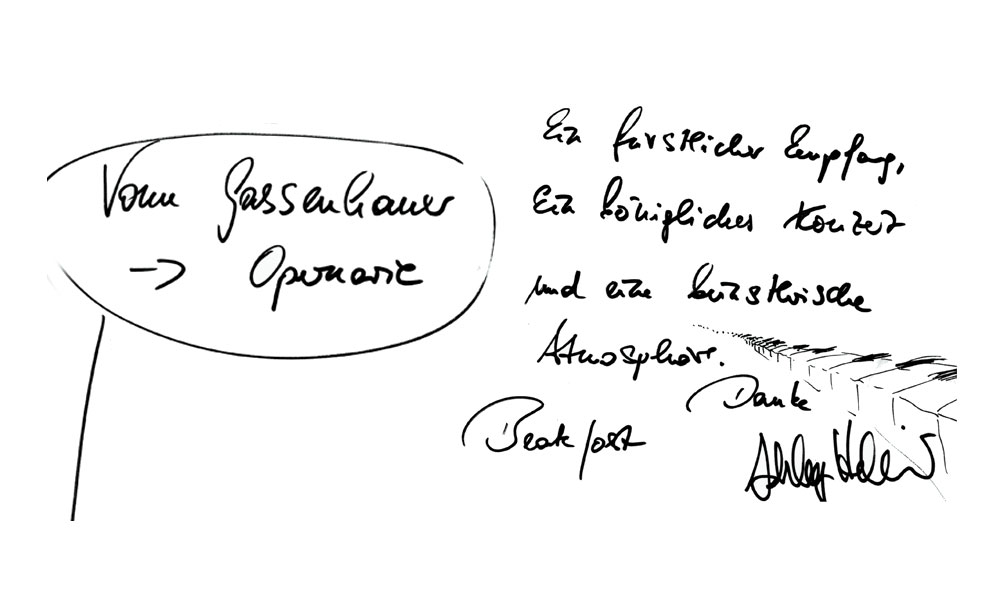 Vom Gassenhauer
→ Opernarie
Ein fürstlicher Empfang,
Ein königliches Konzert
und eine künstlerische
Atmosphäre.
Danke
Beat